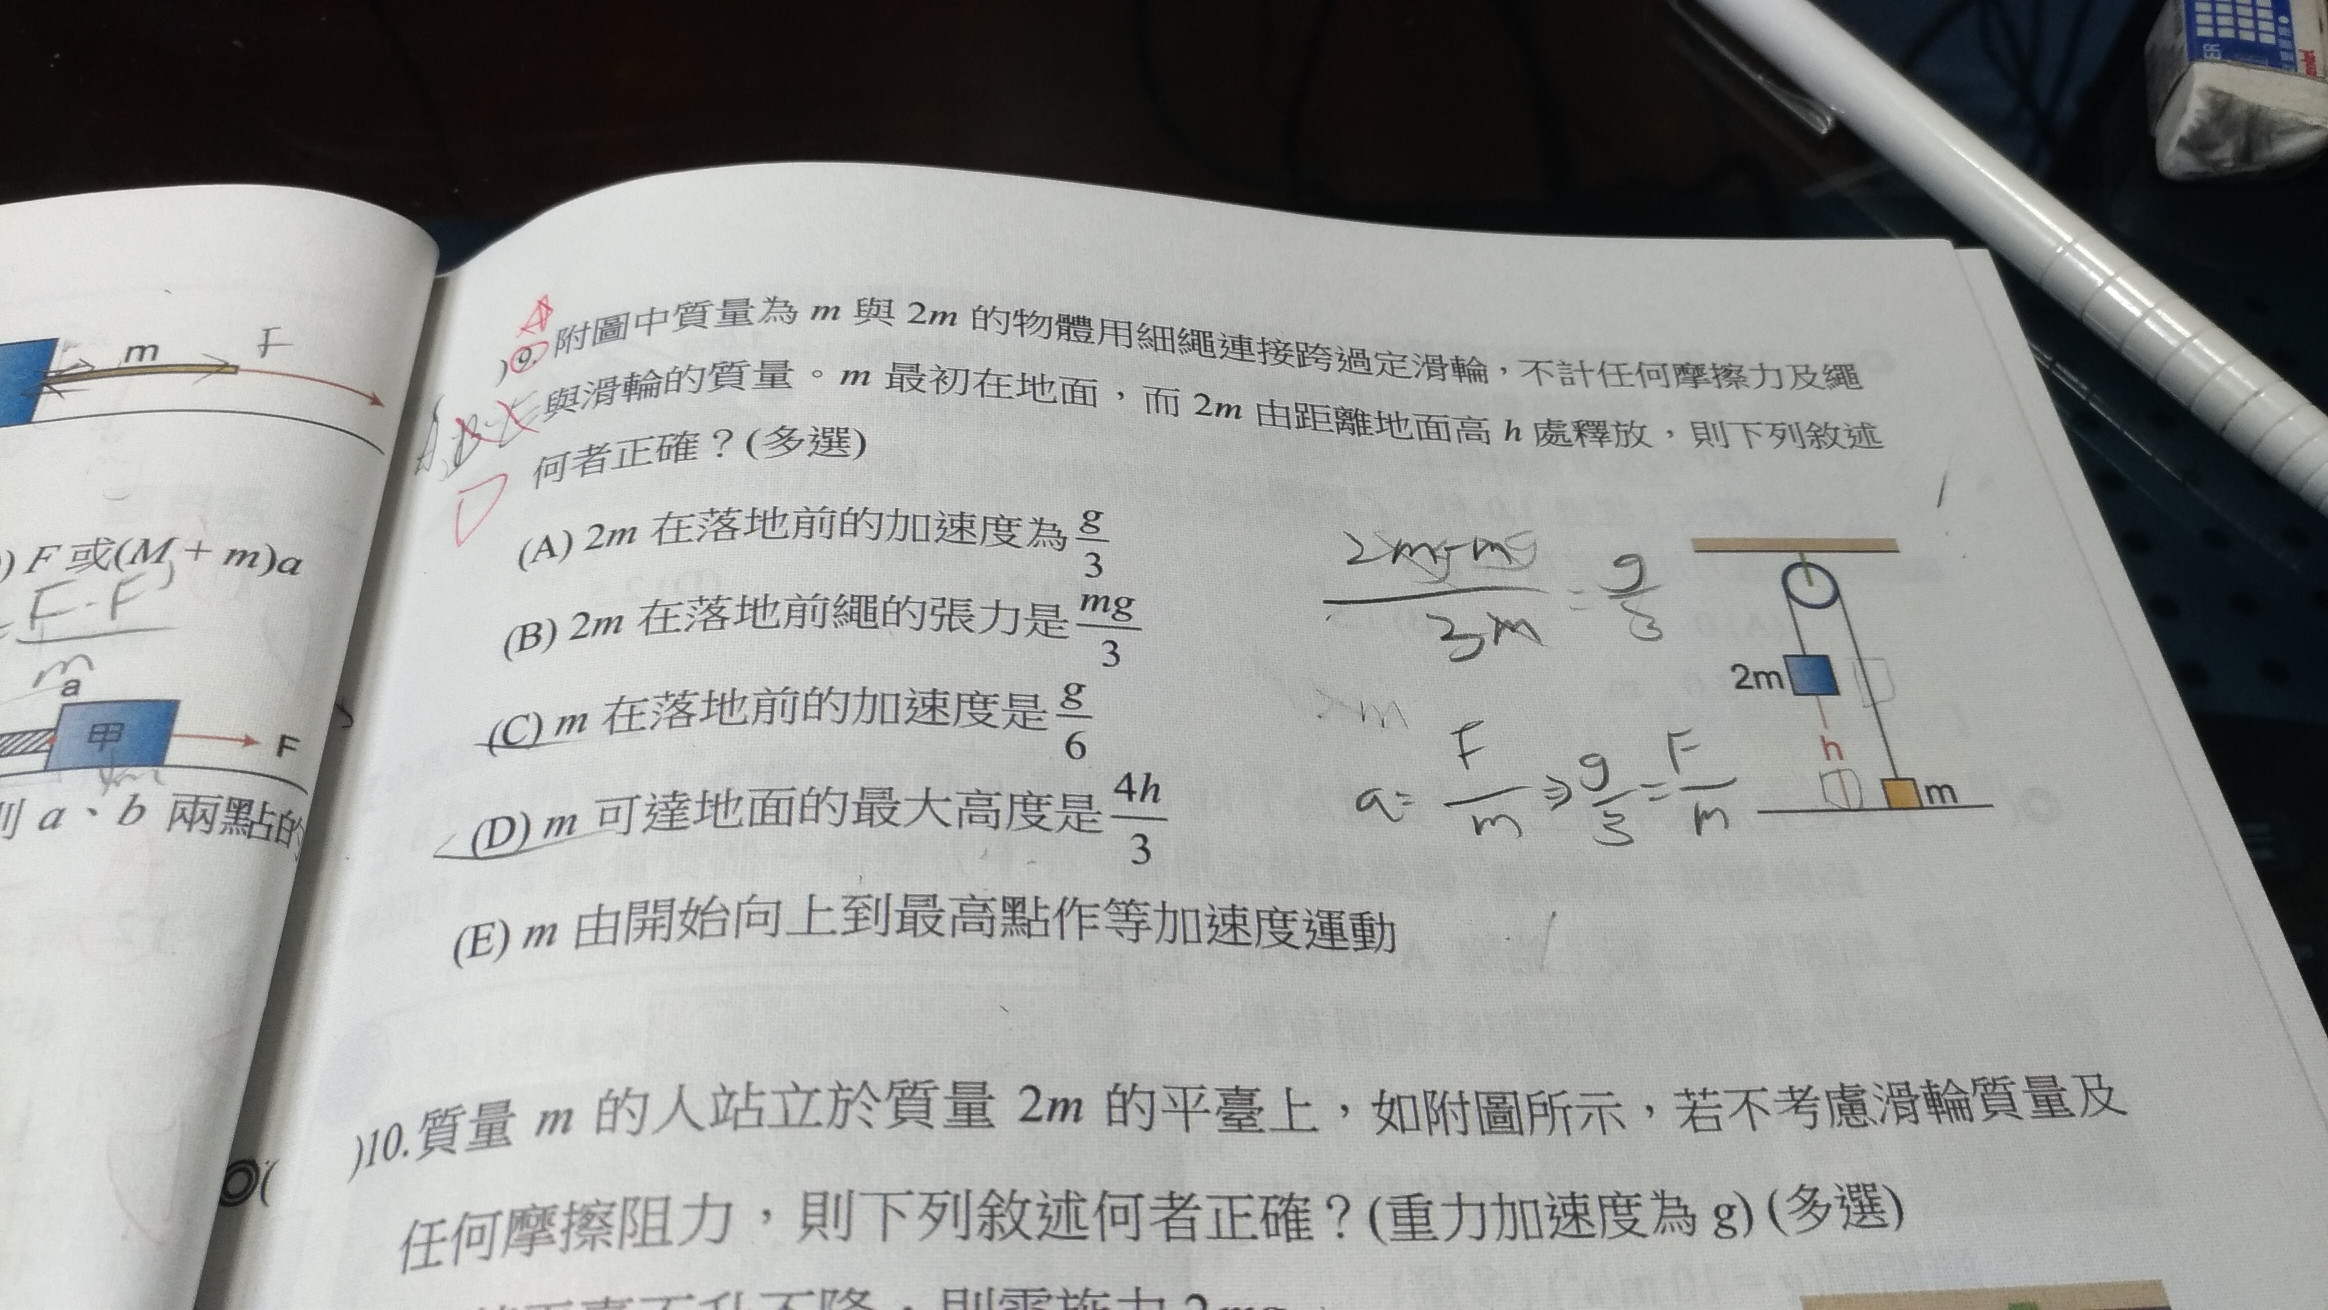 m F
) F 或(M + m)a
F-F
m
a
甲 F
則 a、b 兩點的
A
)9.附圖中質量為 m 與 2m 的物體用細繩連接跨過定滑輪，不計任何摩擦力及繩
與滑輪的質量。m 最初在地面，而 2m 由距離地面高 h 處釋放，則下列敘述
何者正確？(多選)
(A) 2m 在落地前的加速度為 g/3
(B) 2m 在落地前繩的張力是 mg/3
(C) m 在落地前的加速度是 g/6
(D) m 可達地面的最大高度是 4h/3
(E) m 由開始向上到最高點作等加速度運動
2mg-mg/3m = g/3
a= F/m ⇒ g/3 = F/m
2m
h
m
◎( )10.質量 m 的人站立於質量 2m 的平臺上，如附圖所示，若不考慮滑輪質量及
任何摩擦阻力，則下列敘述何者正確？(重力加速度為 g) (多選)